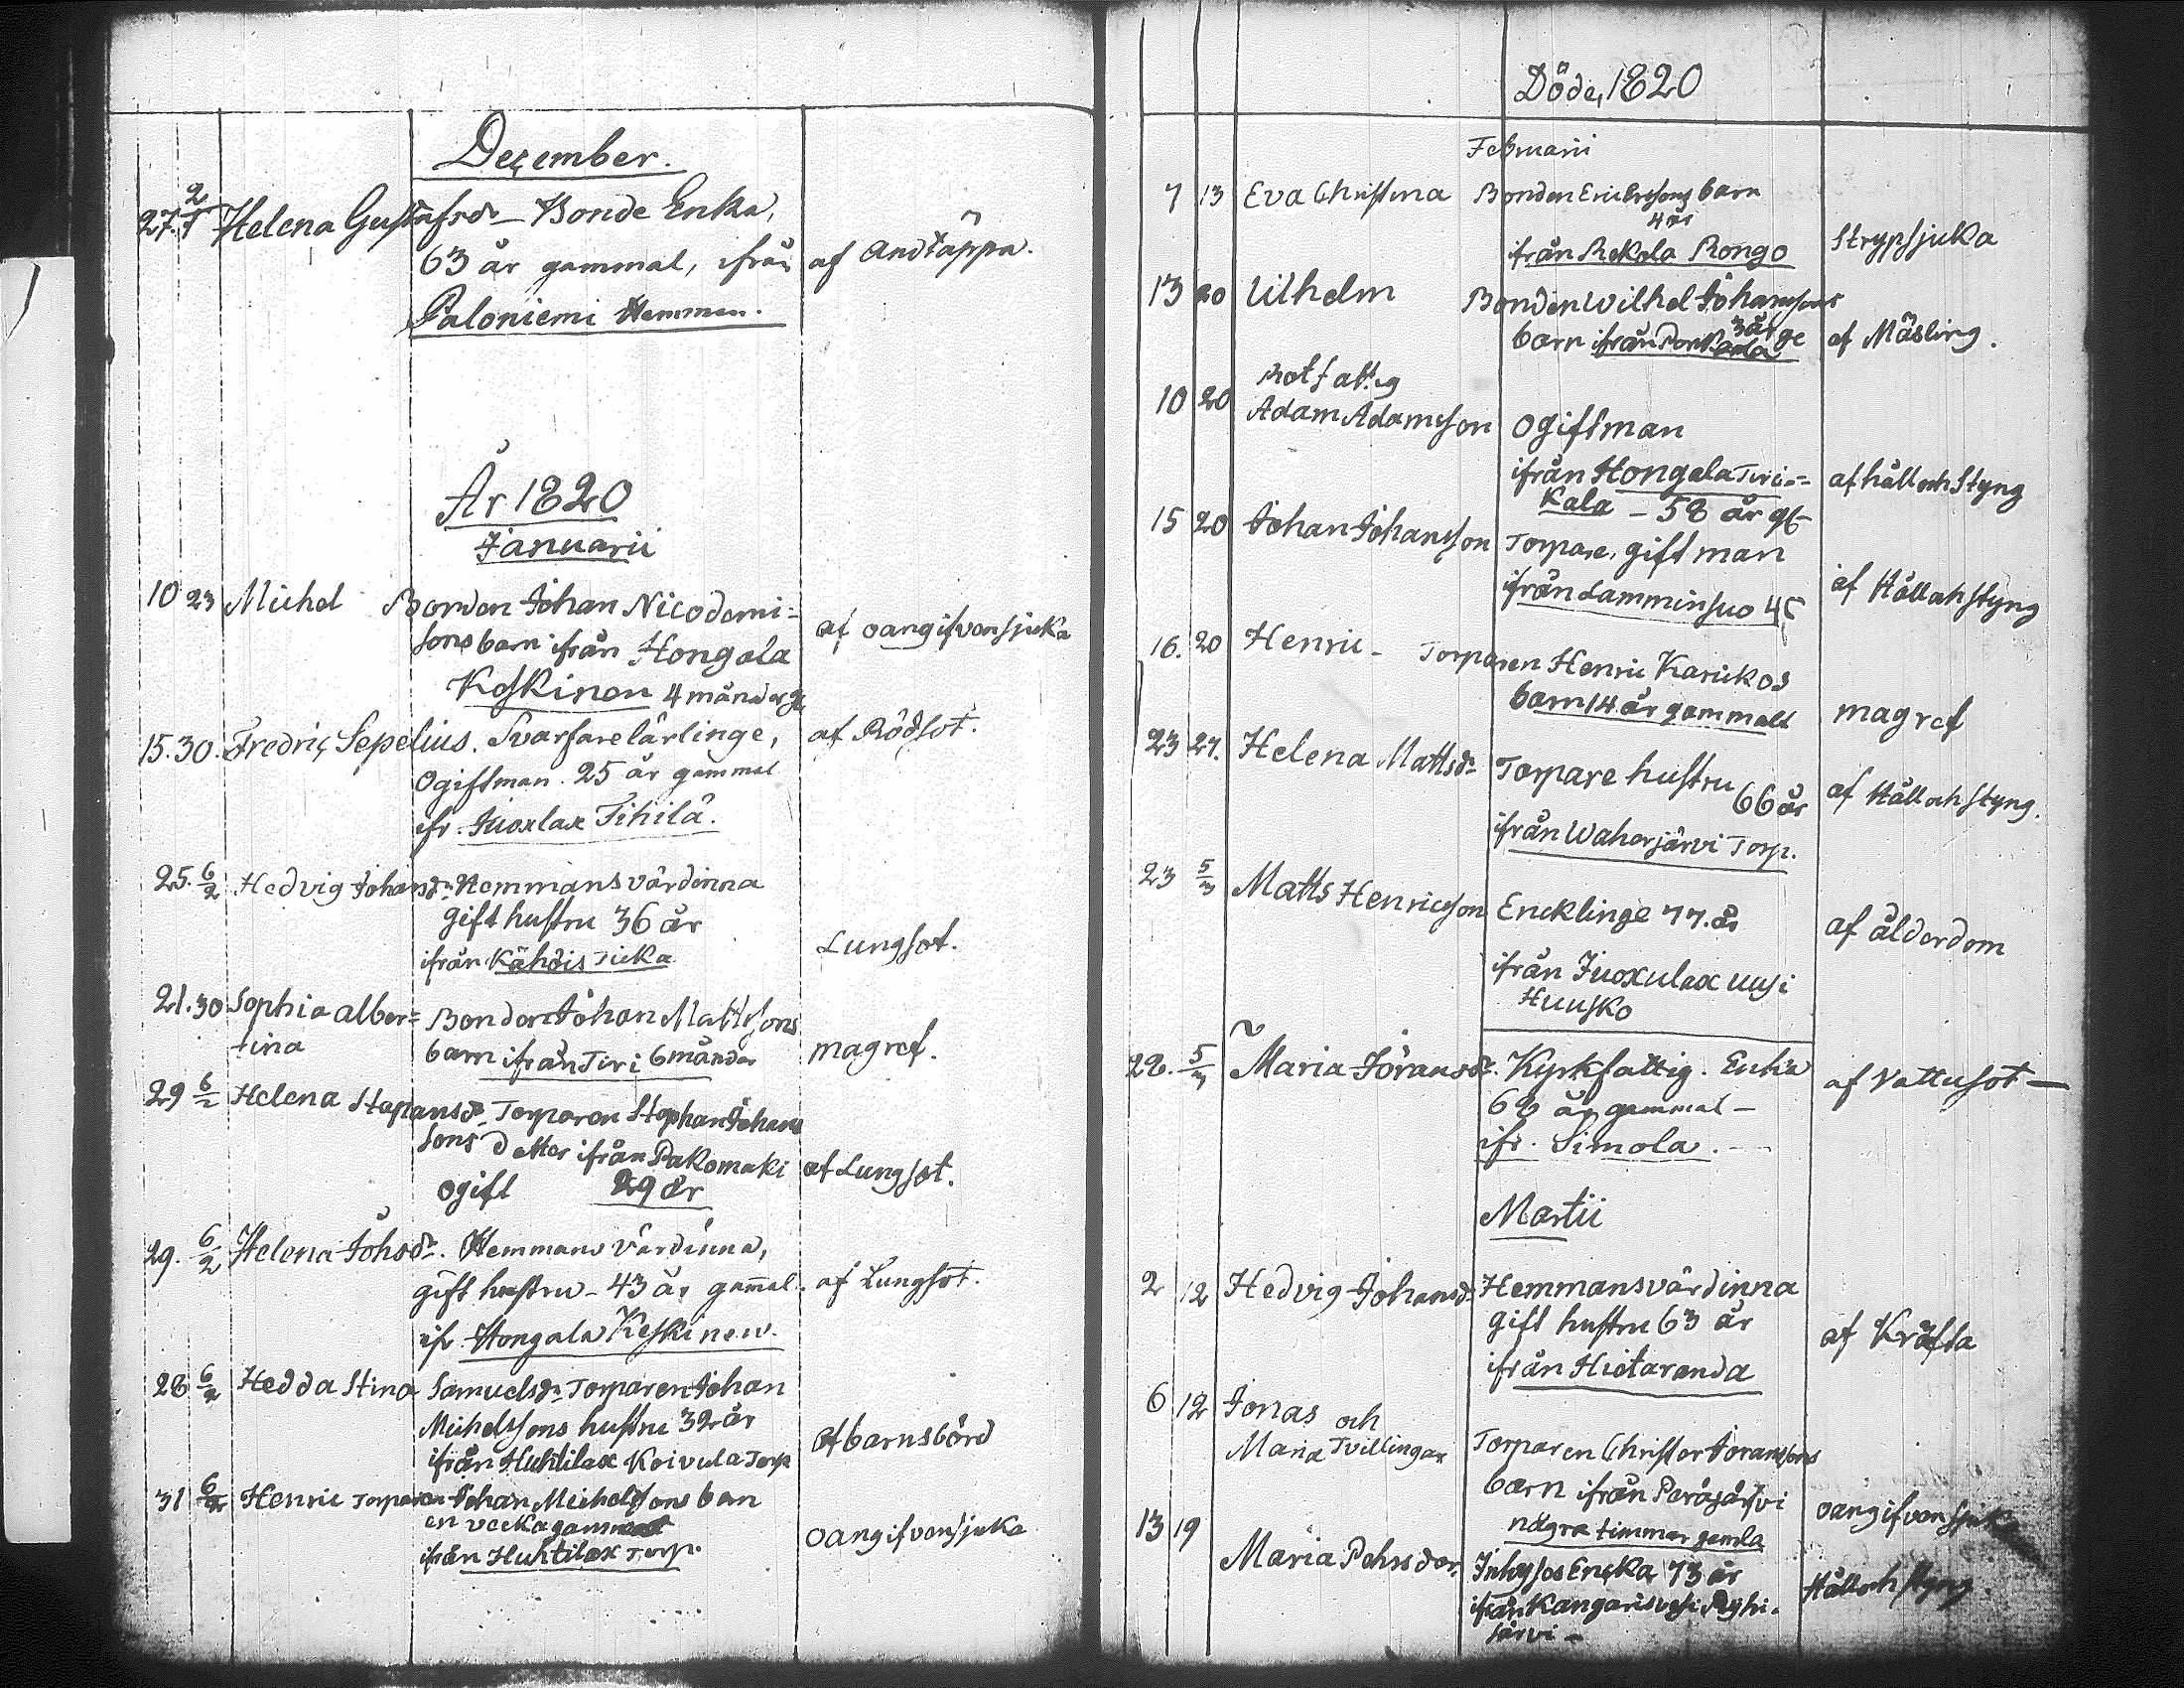 December.
27. 2/1 Helena Gustafsdr Bonde Enka,
63 år gammal, ifrån af Andtäppa.
Paloniemi Hemman.
År 1820
Januarii
10 23 Michel Bonden Johan Nicodemi=
sons barn ifrån Hongola af oangifven sjuka
Koskinen 4 månader gl.
15. 30. Fredric Sepelius. Svarfvare lärlinge, af Rödsot.
Ogift man. 25 år gammal
ifr. Juoxlax Tihilä.
25. 6/2 Hedvig Johansdr Hemmansvärdinna
gift hustru 36 år
ifrån Kähöis Ticka Lungsot.
21. 30 Sophia Alber= Bonden Johan Mattssons
tina barn ifrån Tiri 6 månder magref.
29 6/2 Helena Stepansdr Torparen Stephan Johans
sons dotter ifrån Pakomaki af Lungsot.
ogift 29 år
29. 6/2 Helena Johsdr. Hemmans värdinna,
gift hustru - 43 år gamal. af Lungsot.
ifr. Hongola Keskinen.
28 6/2 Hedda Stina Samuelsdr Torparen Johan
Michelssons hustru 32 år
ifrån Huhtilax Koivula Torp af barnsbörd
31 6/2 Henric Torparen Johan Michelssons barn
en vecka gammalt oangifven sjuka
ifrån Huhtilax Torp.
Döde, 1820
Februarii
7 13 Eva Christina Bonden Eric Ersons barn
4 år
ifrån Rekola Rongo Strypsjuka
13 20 Vilhelm Bonden Wilhel Johanssons
3 år ge
barn ifrån af Mäsling.
Rotfattig
10 20 Adam Adamsson Ogift man
ifrån Hongola Tiri= af håll och Styng
Kala - 58 år gl
15 20 Johan Johansson Torpare, gift man
ifrån Lamminsuo 45 af Håll och styng
16. 20 Henric - Torparen Henric Karickos
barn 14 år gammalt magref
23 27. Helena Mattsdr Torpare hustru
66 år af Håll och styng.
ifrån Waherjärvi Torp.
23 5/3 Matts Henricsson Encklinge 77. år af ålderdom
ifrån Juoxulax Uusi
Huusko
28. 5/3 Maria Jöransdr. Kyrkfattig. Enka af Vattusot —
68 år gammal -
ifr. Simola. -
Martii
2 12 Hedvig Johansdr Hemmansvärdinna
gift hustru 63 år
ifrån Hietaranda af Kräfta
6 12 Jonas och
Maria Tvillingar Torparen Christer Joranssons
barn ifrån Peräjärfvi
några timmar gamla oangifven sjuka
13 19 Maria Pehrsdor. Inhyses Encka 73 år Håll och styng.
ifrån Kangarisvesi Pyhi=
järvi -